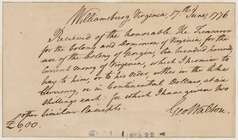 Williamsburg Virginia, 17th June, 1776
Received of the honorable the Treasurer
for the Colony and Dominion of Virginia for the
use of the Colony of Georgia, Six hundred pounds
current money of Virginia, which I promise to
pay to him, or to his order, either in the like
Currency, or in Continental Dollars at six
shillings each, for which I have given two
other similar Receipts.
£600. Geo Walton.